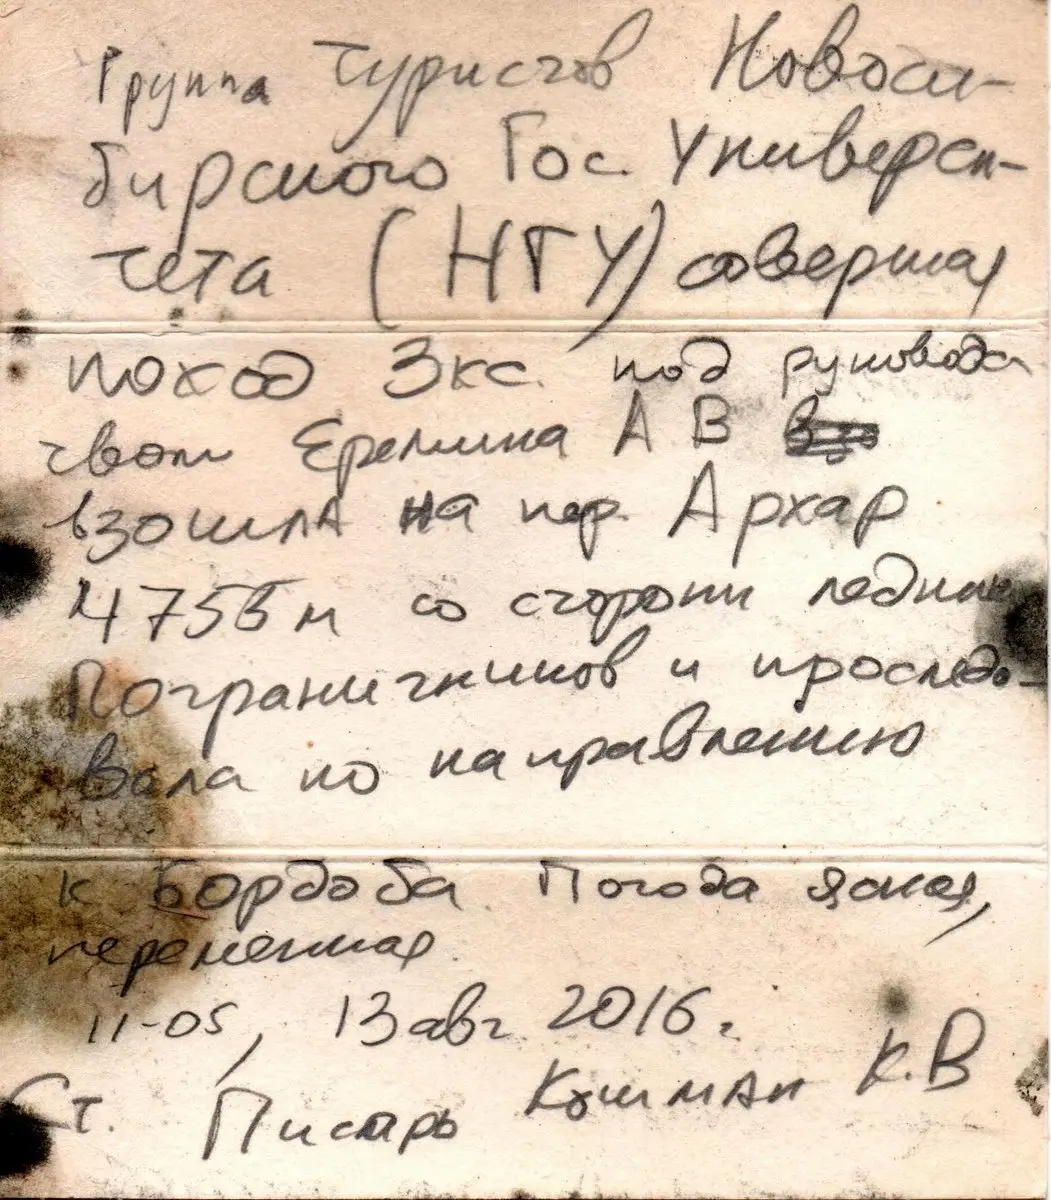 Группа туристов Новоси-
бирского Гос. Универси-
тета (НГУ) совершая
поход 3кс. под руководс
твом Еремина А В
взошла на пер. Архар
4755 м со стороны ледника
Пограничников и проследо-
вала по направлению
к Бордоба. Погода ясная,
переменная.
11-05, 13 авг 2016 г.
Ст. Писарь Кошман К.В